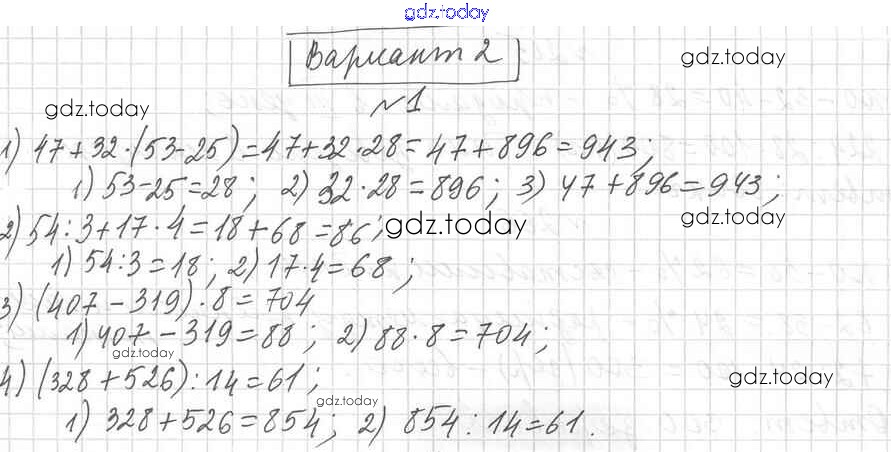 gdz.today
Вариант 2
gdz.today
gdz.today
№1
1) 47+32·(53-25)=47+32·28=47+896=943;
1) 53-25=28; 2) 32·28=896; 3) 47+896=943;
gdz.today
2) 54:3+17·4=18+68=86;
gdz.today
1) 54:3=18; 2) 17·4=68;
3) (407-319)·8=704
1) 407-319=88; 2) 88·8=704;
gdz.today
4) (328+526):14=61;
gdz.today
gdz.today
1) 328+526=854; 2) 854:14=61.